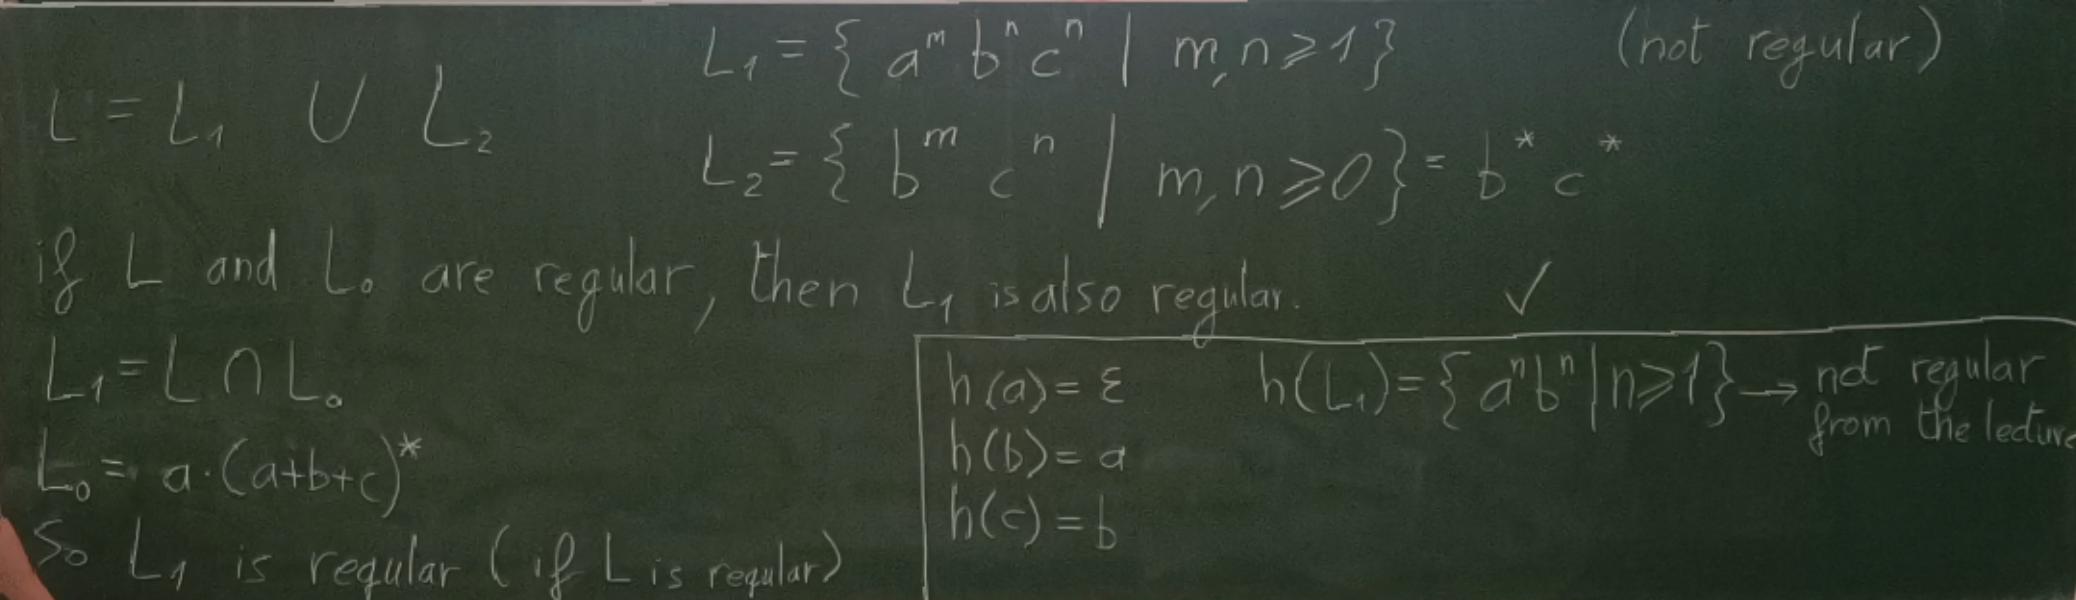 L₁ = { aᵐ bⁿ cⁿ | m, n ⩾ 1 } (not regular)
L = L₁ ∪ L₂
L₂ = { bᵐ cⁿ | m, n ⩾ 0 } = b* c*
if L and L₀ are regular, then L₁ is also regular. ✓
L₁ = L ∩ L₀
L₀ = a·(a+b+c)*
So L₁ is regular (if L is regular)
h(a) = ε
h(b) = a
h(c) = b
h(L₁) = { aⁿbⁿ | n ⩾ 1 } → not regular
from the lecture